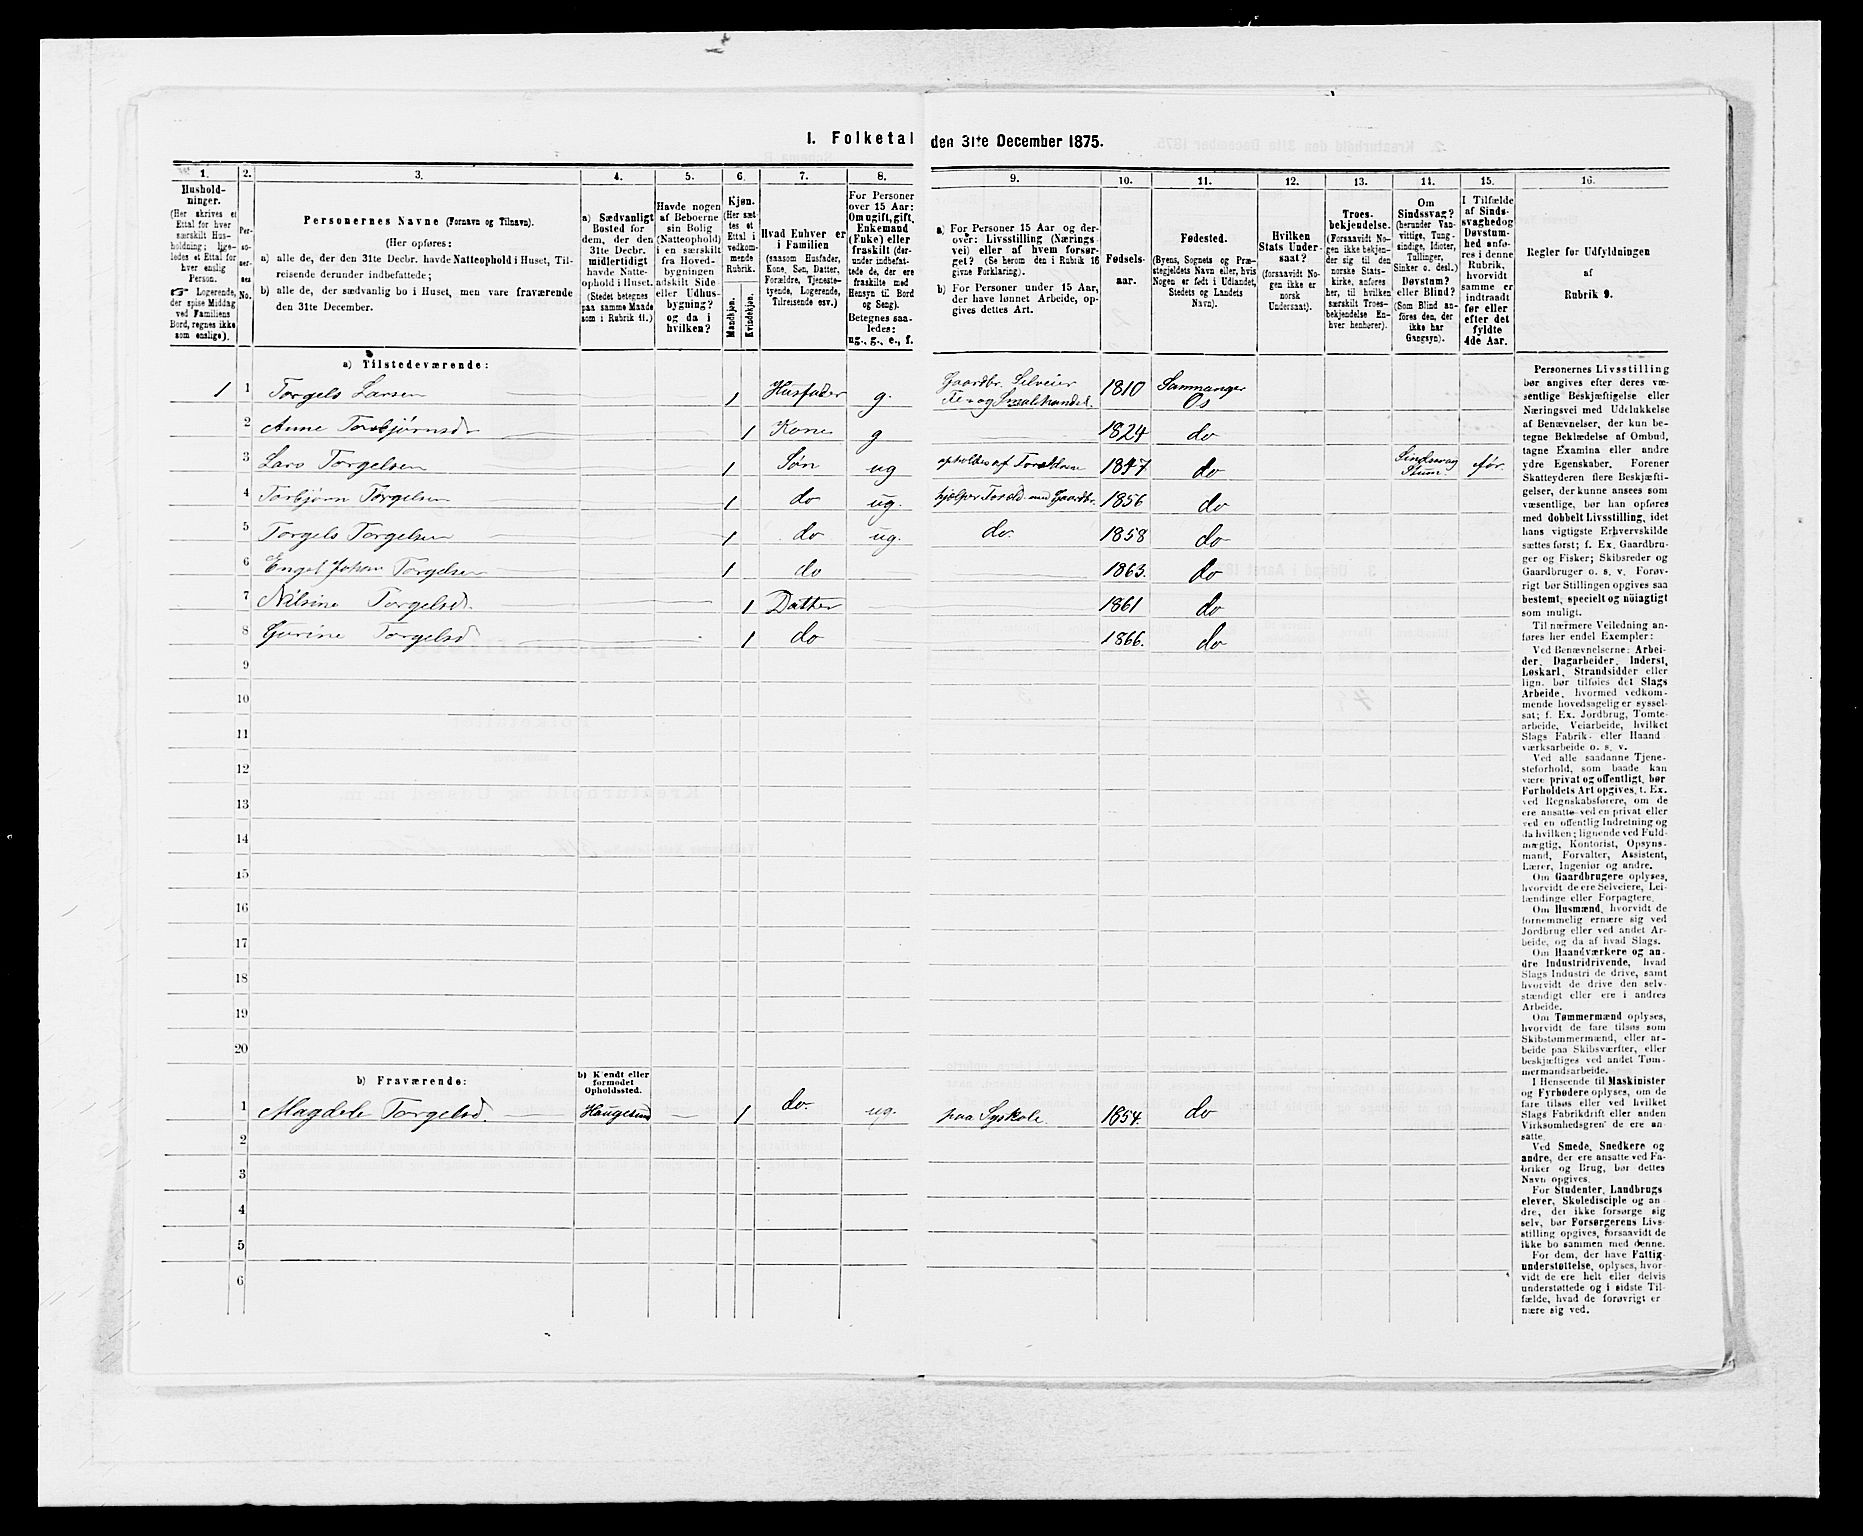 I. Folketal den 31te December 1875.
1.
2.
3.
4.
5.
6.
7.
8.
9.
10.
11.
12.
13.
14.
15.
16.
Hushold-
ninger.
(Her skrives et
Ettal for hver
særskilt Hus-
holdning; lige-
ledes et Ettal for
hver enslig
Person.
☞ Logerende,
der spise Middag
ved Familiens
Bord, regnes ikke
som enslige).
Per-
so-
ner-
nes
No.
Personernes Navne (Fornavn og Tilnavn).
(Her opføres:
a) alle de, der den 31te Decbr. havde Natteophold i Huset, Til-
reisende derunder indbefattede;
b) alle de, der sædvanlig bo i Huset, men vare fraværende
den 31te December.
a) Sædvanligt
Bosted for
dem, der den
31te Decbr.
midlertidigt
havde Natte-
ophold i Huset.
(Stedet betegnes
paa samme Maade
som i Rubrik 11.)
Havde nogen
af Beboerne
sin Bolig
(Natteophold)
i en særskilt
fra Hoved-
bygningen
adskilt Side-
eller Udhus-
bygning?
og da i
hvilken?
Kjøn.
(Her sæt-
tes et
Ettal i
vedkom-
mende
Rubrik.
Mandkjøn.
Kvindekjøn.
Hvad Enhver er
i Familien
(saasom Husfader,
Kone, Søn, Datter,
Forældre, Tjeneste-
tyende, Logerende,
Tilreisende osv.)
For Personer
over 15 Aar:
Om ugift, gift,
Enkemand
(Enke) eller
fraskilt (der-
under indbefat-
tede de, der ere
fraskilte med
Hensyn til Bord
og Seng).
Betegnes saa-
ledes:
ug., g., e., f.
a) For Personer 15 Aar og der-
over: Livsstilling (Nærings-
vei) eller af hvem forsør-
get? (Se herom den i Rubrik 16
givne Forklaring).
b) For Personer under 15 Aar,
der have lønnet Arbeide, op-
gives dettes Art.
Fødsels-
aar.
Fødested.
(Byens, Sognets og Præ-
stegjeldets Navn eller, hvis
Nogen er født i Udlandet,
Stedets og Landets
Navn).
Hvilken
Stats Under-
saat?
(forsaavidt No-
gen ikke er
norsk
Undersaat).
Troes-
bekjendelse.
(Forsaavidt No-
gen ikke bekjen-
der sig til den
norske Stats-
kirke, anføres
her, til hvilken
særskilt Troes-
bekjendelse En-
hver henhører).
Om
Sindssvag?
(herunder Van-
vittige, Tung-
sindige, Idioter,
Tullinger,
Sinker o. desl.)
Døvstum?
eller Blind?
(Som Blind an-
føres den, der
ikke har
Gangsyn).
I Tilfælde
af Sinds-
svaghed og
Døvstum-
hed anfø-
res i denne
Rubrik,
hvorvidt
samme er
indtraadt
før eller
efter det
fyldte
4de Aar.
Regler for Udfyldningen
af
Rubrik 9.
a) Tilstedeværende:
1 1 Torgels Larsen 1 Husfader g. Gaardbr. Selveier 1810 Sammanger
Fe og Smalehandel. Os
2 Anne Torbjørnsd 1 Kone g 1824 do
3 Lars Torgelsen 1 Søn ug opholdes af Forældrene 1847 do Sindssvag Stum. før.
4 Torbjørn Torgelsen 1 do ug. hjelper Foræld. med Gaardbr. 1856 do
5 Torgels Torgelsen 1 do ug. do. 1858 do
6 Engel Johan Torgelsen 1 do 1863. do
7 Nilsine Torgelsd. 1 Datter 1861 do
8 Gurine Torgelsd 1 do 1866. do
9
10
11
12
13
14
15
16
17
18
19
20
b) Fraværende:
b) Kjendt eller
formodet
Opholdssted.
1 Magdele Torgelsd. Haugesund 1 do. ug. paa Syskole. 1854. do
2
3
4
5
6
Personernes Livsstilling
bør angives efter deres væ-
sentlige Beskjæftigelse eller
Næringsvei med Udelukkelse
af Benævnelser, der kun be-
tegne Beklædelse af Ombud,
tagne Examina eller andre
ydre Egenskaber. Forener
Skatteyderen flere Beskjæfti-
gelser, der kunne ansees som
væsentlige, bør han opføres
med dobbelt Livsstilling, idet
hans vigtigste Erhvervskilde
sættes først; f. Ex. Gaardbru-
ger og Fisker; Skibsreder og
Gaardbruger o. s. v. Forøv-
rigt bør Stillingen opgives saa
bestemt, specielt og nøiagtigt
som muligt.
Til nærmere Veiledning an-
føres her endel Exempler:
Ved Benævnelserne: Arbei-
der, Dagarbeider, Inderst,
Løskarl, Strandsidder eller
lign. bør tilføies det Slags
Arbeide, hvormed vedkom-
mende hovedsagelig er syssel-
sat; f. Ex. Jordbrug, Tomte-
arbeide, Veiarbeide, hvilket
Slags Fabrik- eller Haand
værksarbeide o. s. v.
Ved alle saadanne Tjene-
steforhold, som baade kan
være privat og offentligt, bør
Forholdets Art opgives, t. Ex.
ved Regnskabsførere, om de
ere ansatte ved en privat eller
ved en offentlig Indretning og
da hvilken; lignende ved Fuld-
mægtig, Kontorist, Opsyns-
mand, Forvalter, Assistent,
Lærer, Ingeniør og andre.
Om Gaardbrugere oplyses,
hvorvidt de ere Selveiere, Lei-
lændinge eller Forpagtere.
Om Husmænd, hvorvidt de
fornemmelig ernære sig ved
Jordbrug eller ved andet Ar-
beide, og da af hvad Slags.
Om Haandværkere og an-
dre Industridrivende, hvad
Slags Industri de drive, samt
hvorvidt de drive den selv-
stændigt eller ere i andres
Arbeide.
Om Tømmermænd oplyses,
hvorvidt de fare tilsøs som
Skibstømmermænd, eller ar-
beide paa Skibsværfter, eller
beskjæftiges ved andet Tøm-
mermandsarbeide.
I Henseende til Maskinister
og Fyrbødere oplyses, om de
fare tilsøs eller ved hvilket
Slags Fabrikdrift eller anden
Virksomhedsgren de ere an-
satte.
Ved Smede, Snedkere og
andre, der ere ansatte ved Fa-
briker og Brug, bør dettes
Navn opgives.
For Studenter, Landbrugs
elever, Skoledisciple og an-
dre, der ikke forsørge sig
selv, bør Forsørgerens Livs-
stilling opgives, forsaavidt de
ikke bo sammen med denne.
For dem, der have Fattig-
understøttelse, oplyses, hvor-
vidt de ere helt eller delvis
understøttede og i sidste Til-
fælde, hvad de forøvrigt er
nære sig ved.